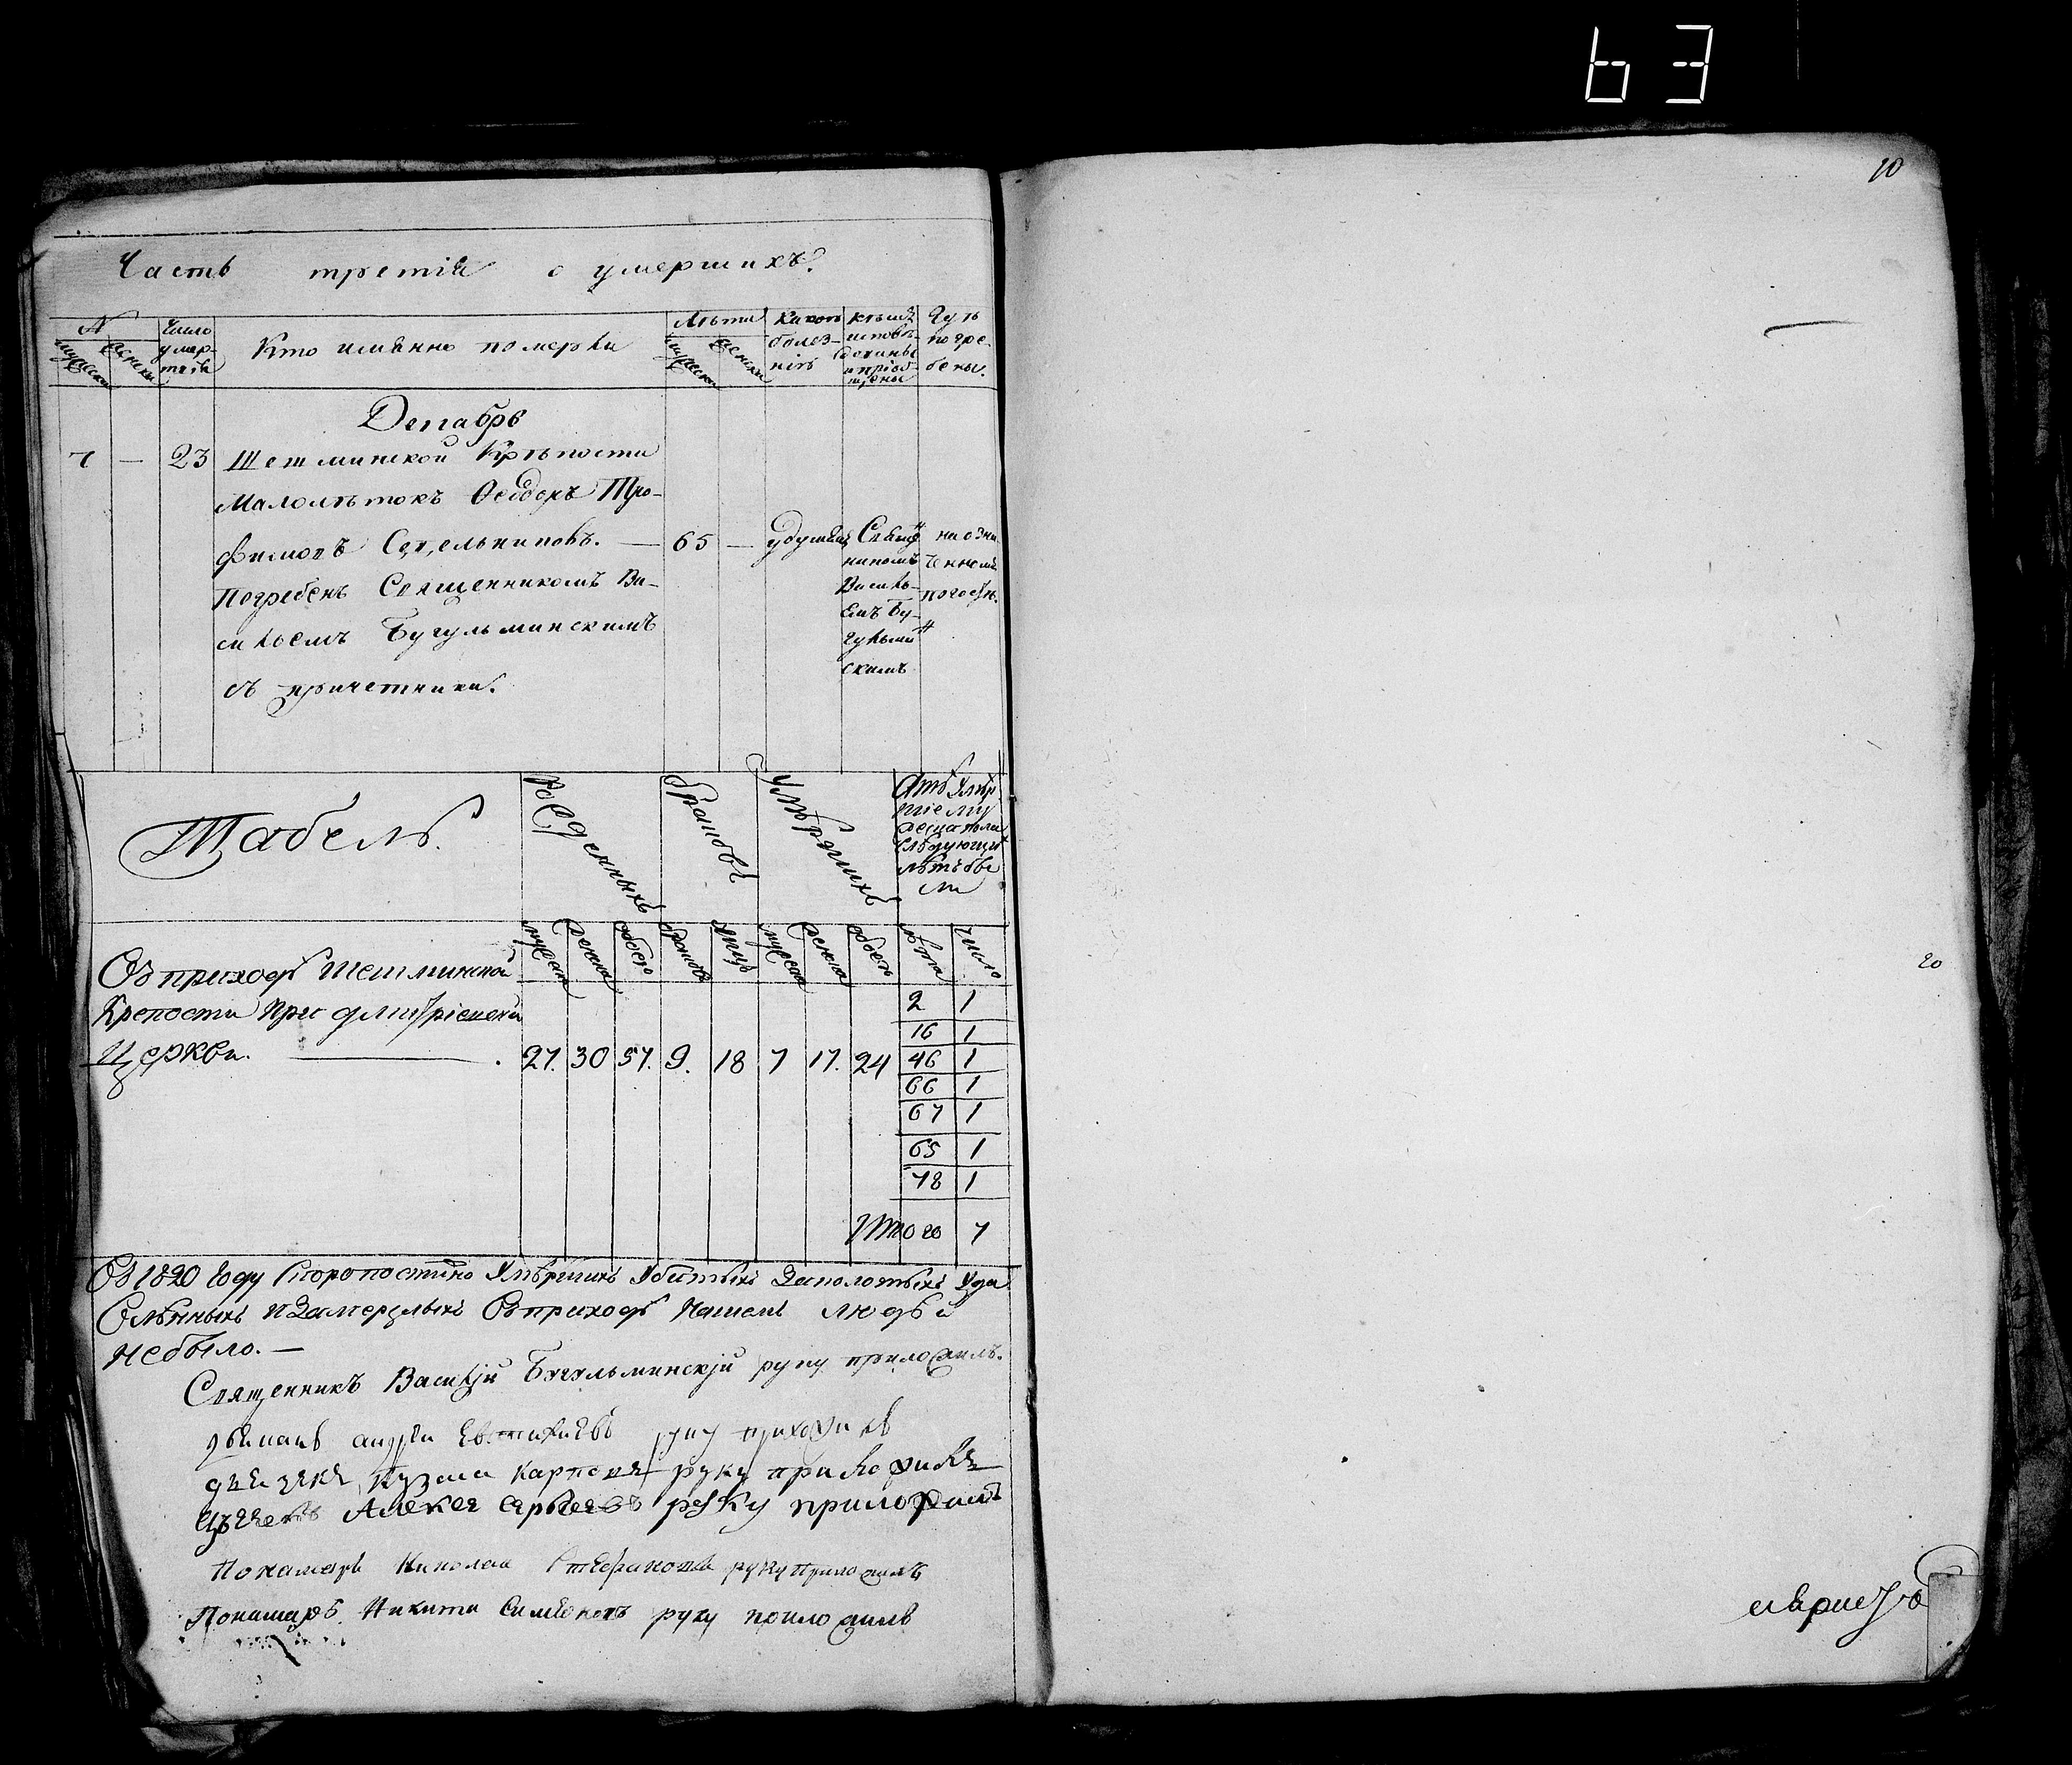 63
10
Часть третія о умершихъ.
N
мужеска
женска
Число умер-
шихъ
Кто имянно померли
Лѣта
мужеска
женска
Какою
болез-
нію
кѣмъ
исповѣ-
дованы
и пріоб-
щены
Гдѣ
погре-
бены.
Декабрь
7 — 23 Шешминской Крѣпости
Малолѣтокъ Ѳеодоръ Тро-
фимовъ Сѣдельниковъ. — 65 —
Погребенъ Священникомъ Ва-
сильемъ Бугульминскимъ
съ причетники.
Свящ
никомъ
Василь-
емъ Бу-
гульмин
скимъ
на озна
ченномъ
погостѣ.
Табель.
Рожденныхъ
браковъ
Умѣршихъ
мужеска
женска
обоего
браковъ
лицъ
мужеска
женска
обоего
лѣта
число
Въ приходѣ Шешминской
Крепости При дмитріевской
Церкви. — 27. 30 57. 9. 18 7 17. 24
2 1
16 1
46 1
66 1
67 1
65 1
78 1
Итого 7
Въ 1820 Году Скоропостижно Умѣршихъ Убитыхъ Заколотыхъ Уда
Вленныхъ и Замерзлыхъ Въ приходѣ Нашемъ людѣй
Небыло. —
Священникъ Василій Бугульминскій руку приложилъ.
андрей Евтихиевъ руку приложилъ
Кузма Карповъ руку приложилъ
Алексей руку приложилъ
Пономарь Николай Стефановъ руку приложилъ
Пономарь Никита Симеоновъ руку приложилъ
20